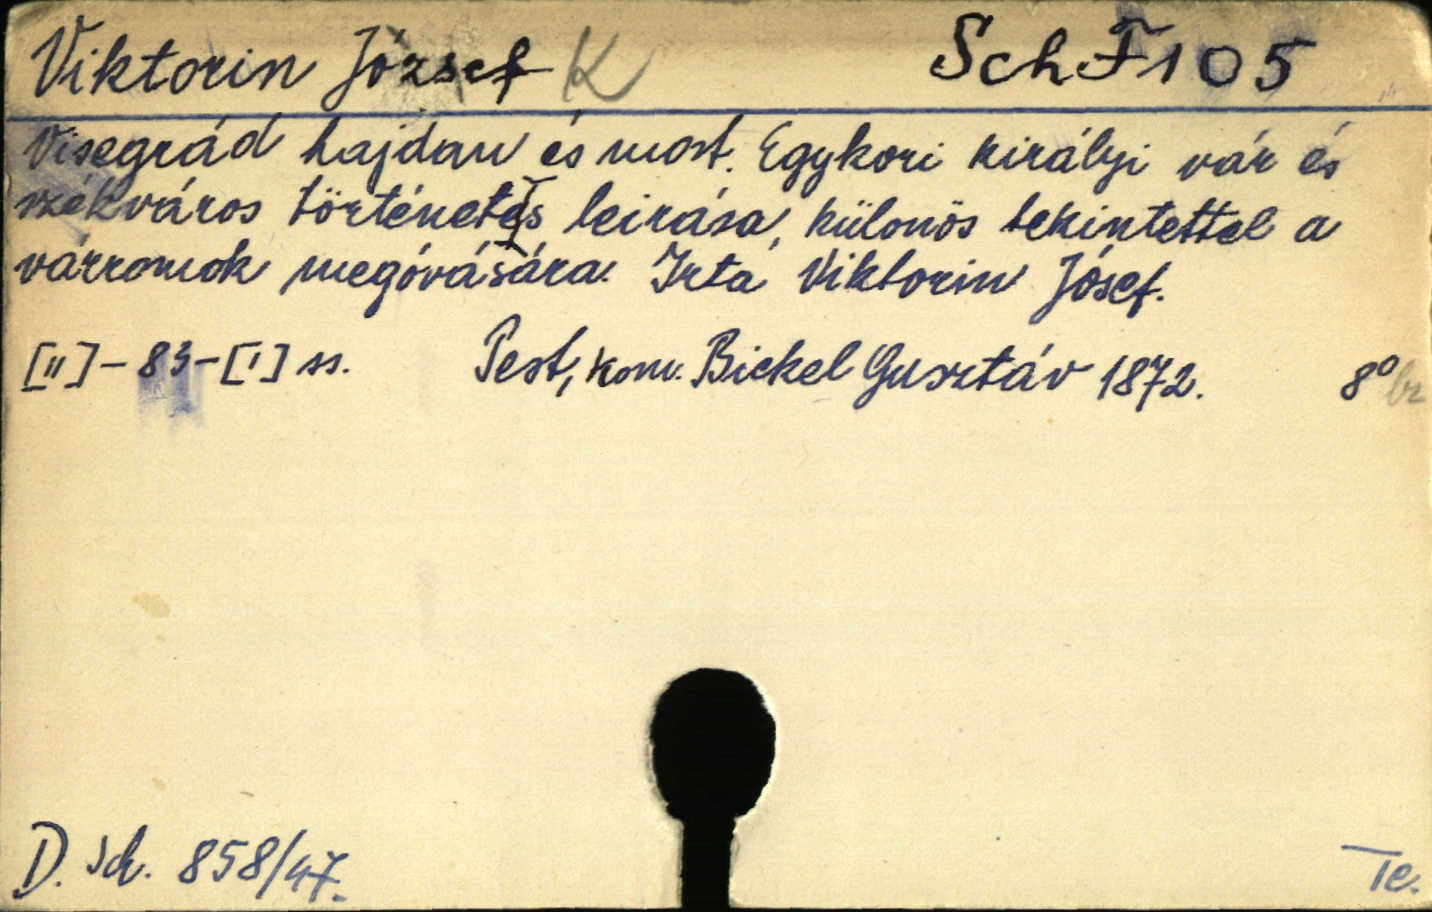 Viktorin József K Sch F 105
Visegrád hajdan és most. Egykori királyi vár és
székváros története s leirása, külonös tekintettel a
várromok megóvására. Irta Viktorin Jósef.
[II]-83-[1] ss. Pest, kom. Bickel Gusztáv 1872. 8° br
D. sch. 858/47.
Te.